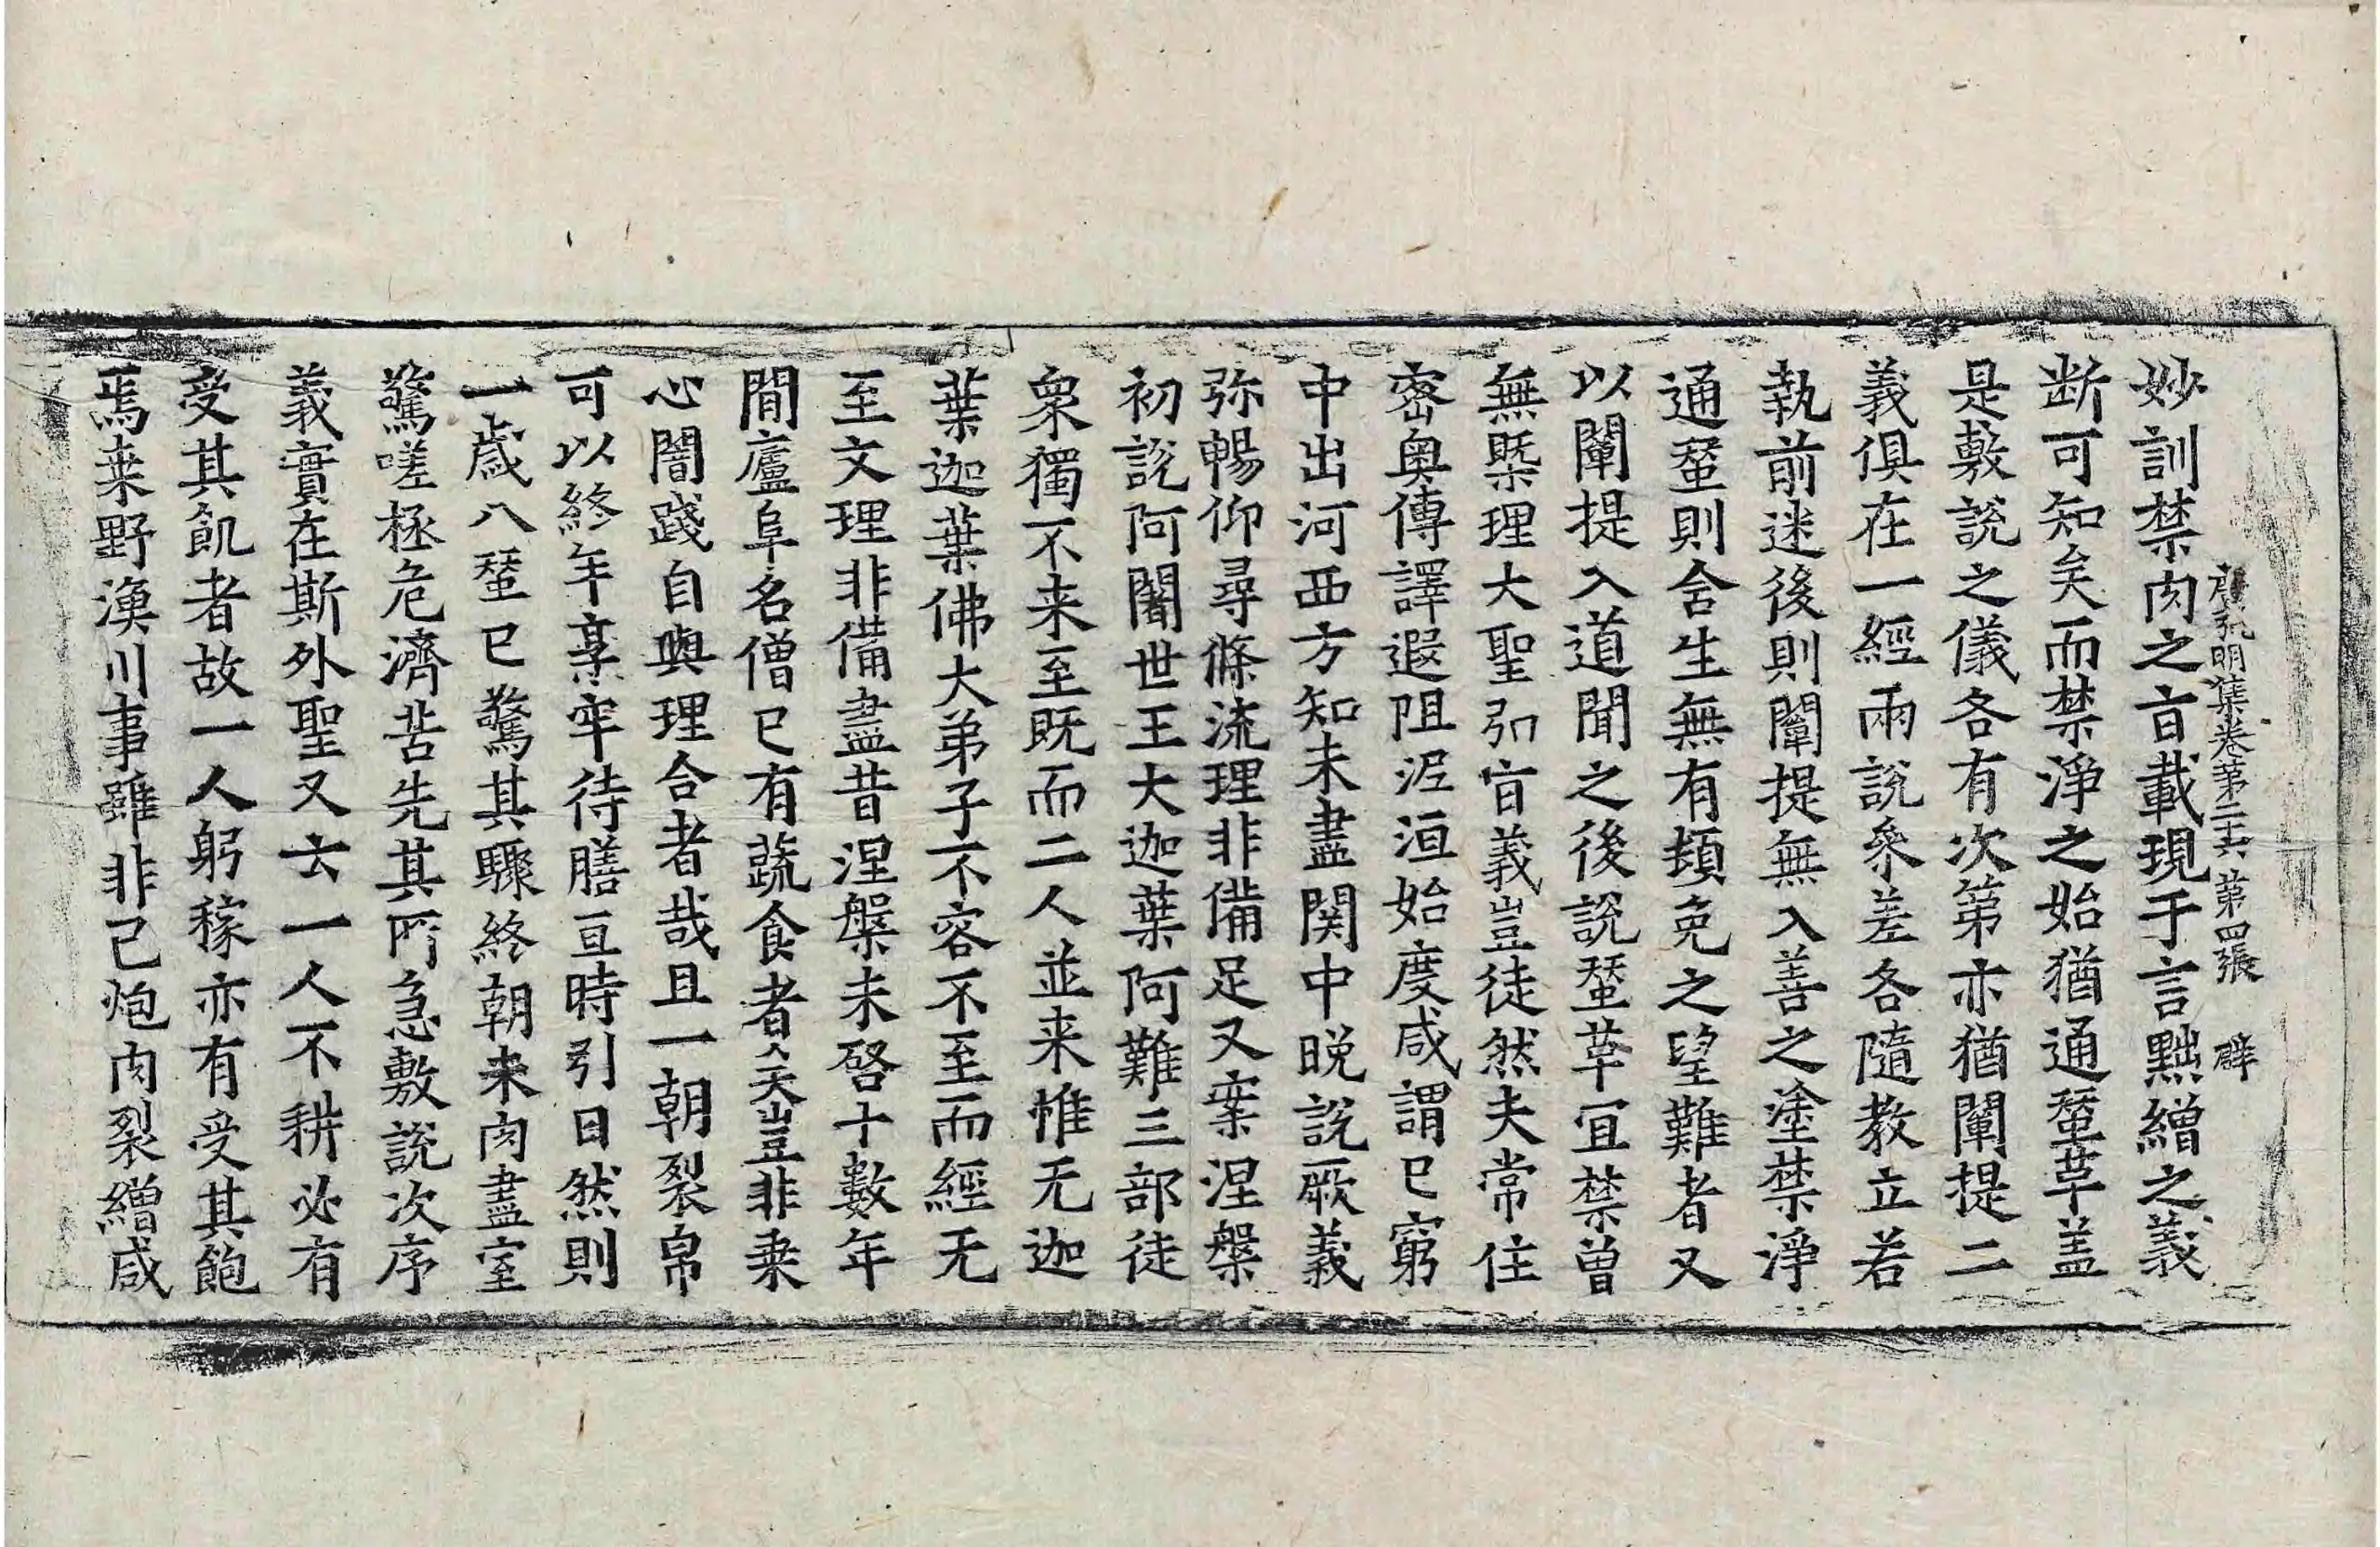 廣弘明集卷第二十六 第四張 辟
妙訓禁肉之旨載現于言黜繒之義
断可知矣而禁淨之始猶通蝅草盖
是敷說之儀各有次第亦猶闡提二
義俱在一經兩說叅差各隨教立若
執前迷後則闡提無入善之塗禁淨
通蝅則含生無有頓免之望難者又
以闡提入道聞之後說蝅草宜禁曾
無槩理大聖弘旨義豈徒然夫常住
密奥傳譯遐阻泥洹始度咸謂已窮
中出河西方知未盡関中晚說厥義
弥暢仰尋條流理非備足又案涅槃
初說阿闍世王大迦葉阿難三部徒
衆獨不来至既而二人並来惟无迦
葉迦葉佛大弟子不容不至而經无
至文理非備盡昔涅槃未啓十數年
閒廬阜名僧已有蔬食者矣豈非乗
心闇踐自與理合者哉且一朝裂帛
可以終年烹牢待膳亘時引日然則
一歲八蝅已驚其驟終朝未肉盡室
驚嗟拯危濟苦先其所急敷說次序
義實在斯外聖又云一人不耕必有
受其飢者故一人躬稼亦有受其飽
焉桒野漁川事雖非己炮肉裂繒咸